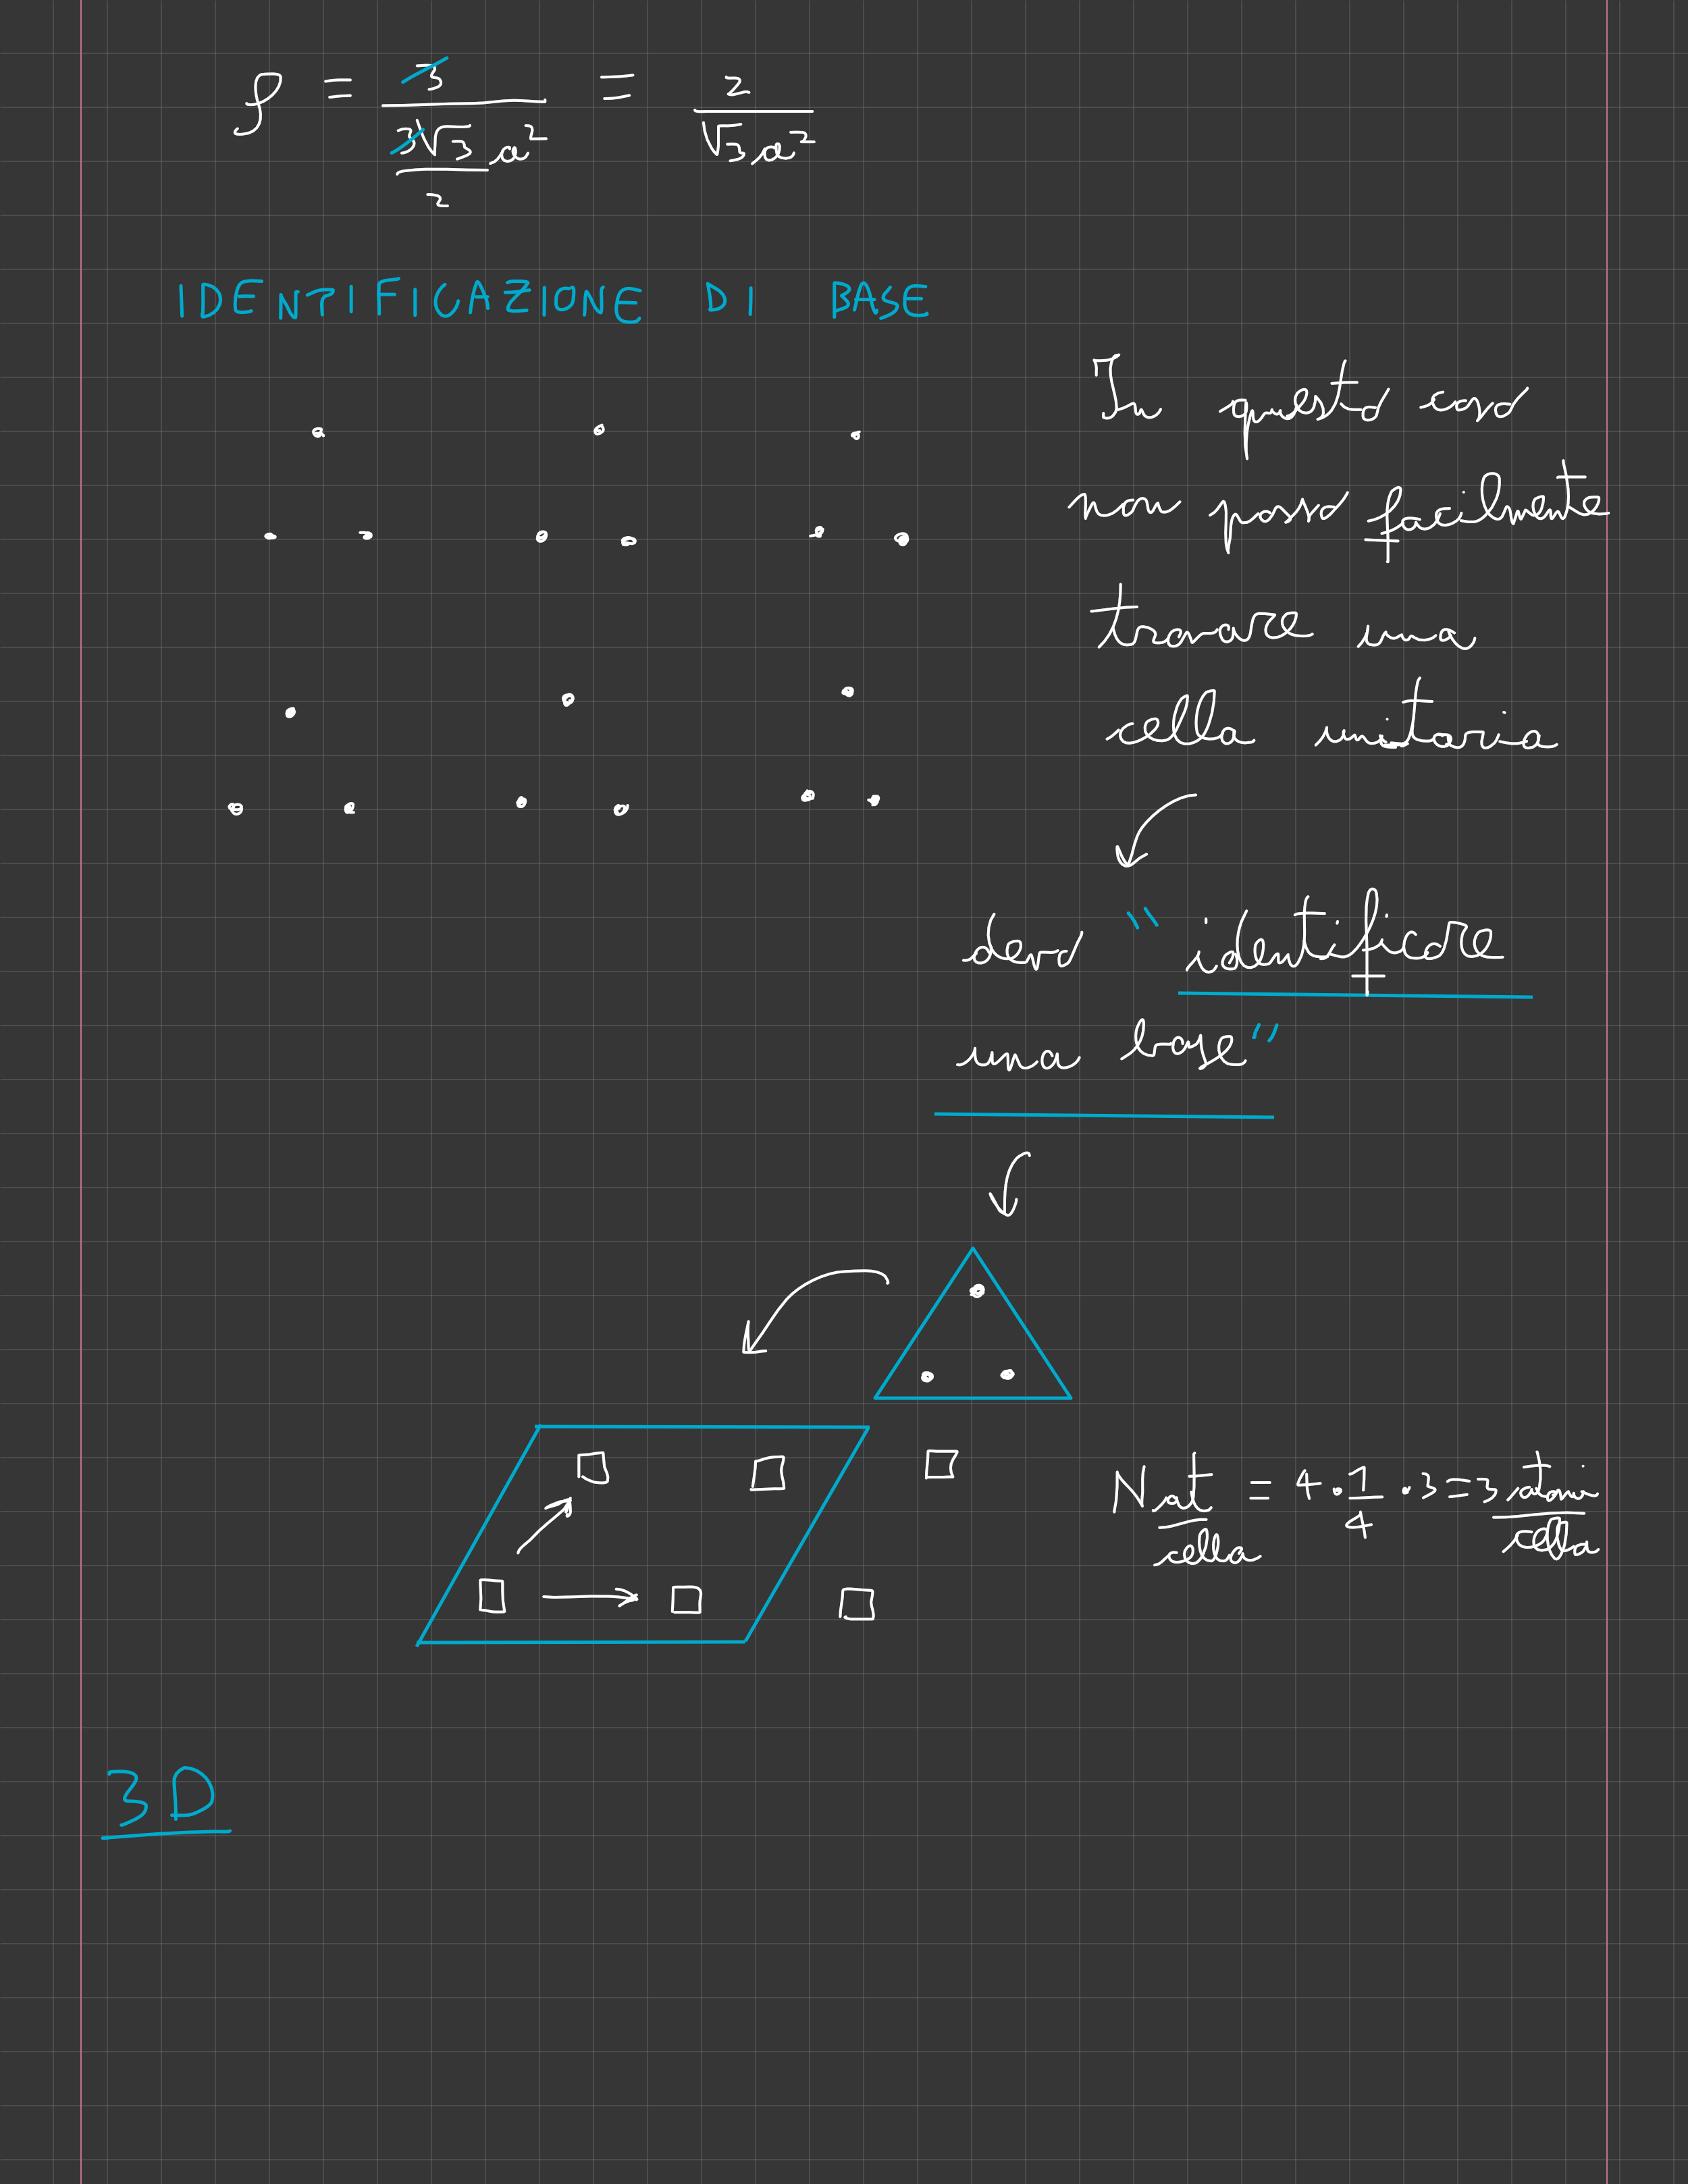 ρ = 3 / (3√3/2 a²) = 2 / (√3 a²)
IDENTIFICAZIONE DI BASE
In questo caso
non posso facilmente
trovare una
cella unitaria
devo "identificare
una base"
N at/cella = 4 · 1/4 · 3 = 3 atomi/cella
3D